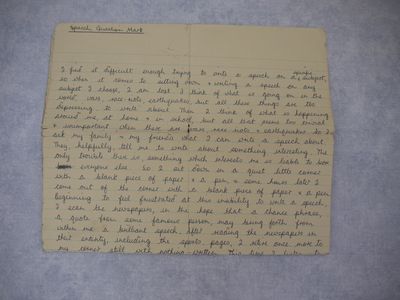 Speech Question Mark
I find it difficult enough trying to write a speech on a specific subject,
so when it comes to sitting down & writing a speech on any
subject I choose, I am lost. I think of what is going on in the
world, wars, race riots, earthquakes, but all these things are too
depressing to write about. Then I think of what is happening
around me, at home & in school, but all that seems too trivial
& unimportant, when there are wars race riots & earthquakes. So I
ask my family & my friends what I can write a speech about.
They helpfully, tell me to write about something interesting. The
only trouble there is, something which interests me is liable to bore
everyone else. So I sit down in a quiet little corner
with a blank piece of paper & a pen & some hours later I
come out of the corner with a blank piece of paper & a pen
beginning to feel frustrated at this inability to write a speech,
I scan the newspapers, in the hope that a chance phrase,
a quote from some famous person may bring forth from
within me a brilliant speech. After reading the newspapers in
their entirety, including the sports pages, I retire once more to
my corner still with nothing written. This time I